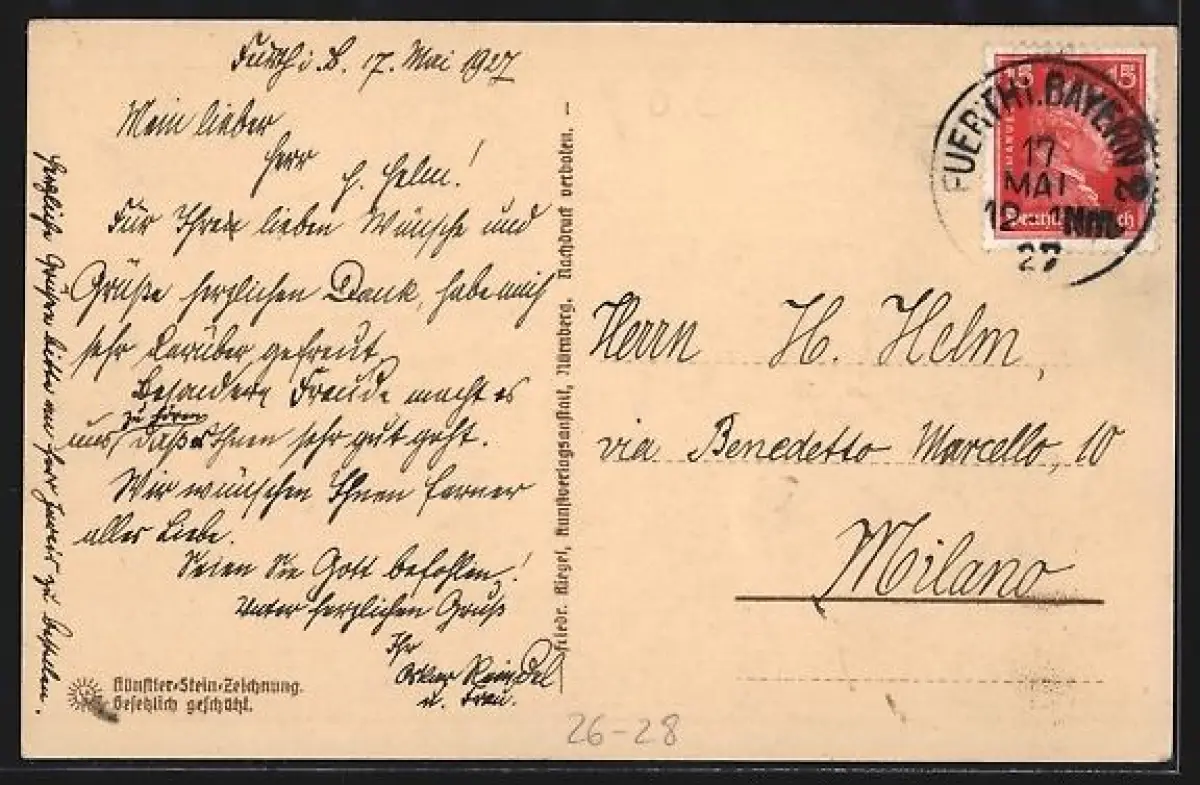 Fürth i. B. 17. Mai 1927
Mein lieber
Herr H. Helm!
Für Ihre lieben Wünsche und
Grüße herzlichen Dank, habe mich
sehr darüber gefreut.
Besondere Freude macht es
uns, zu hören daß es Ihnen sehr gut geht.
Wir wünschen Ihnen ferner
alles Liebe.
Seien Sie Gott befohlen!
Unter herzlichen Gruß
Ihr
Oskar
u. Frau.
Herzliche Grüße bitte an Herr zu bestellen.
Künstler-Stein-Zeichnung.
Gesetzlich geschützt.
Friedr. Riegel, Kunstverlagsanstalt, Nürnberg. Nachdruck verboten. —
15 15
FUERTH i. BAYERN 2
17
MAI
12-1 Nm.
27
Herrn H. Helm,
via Benedetto Marcello, 10
Milano
26-28